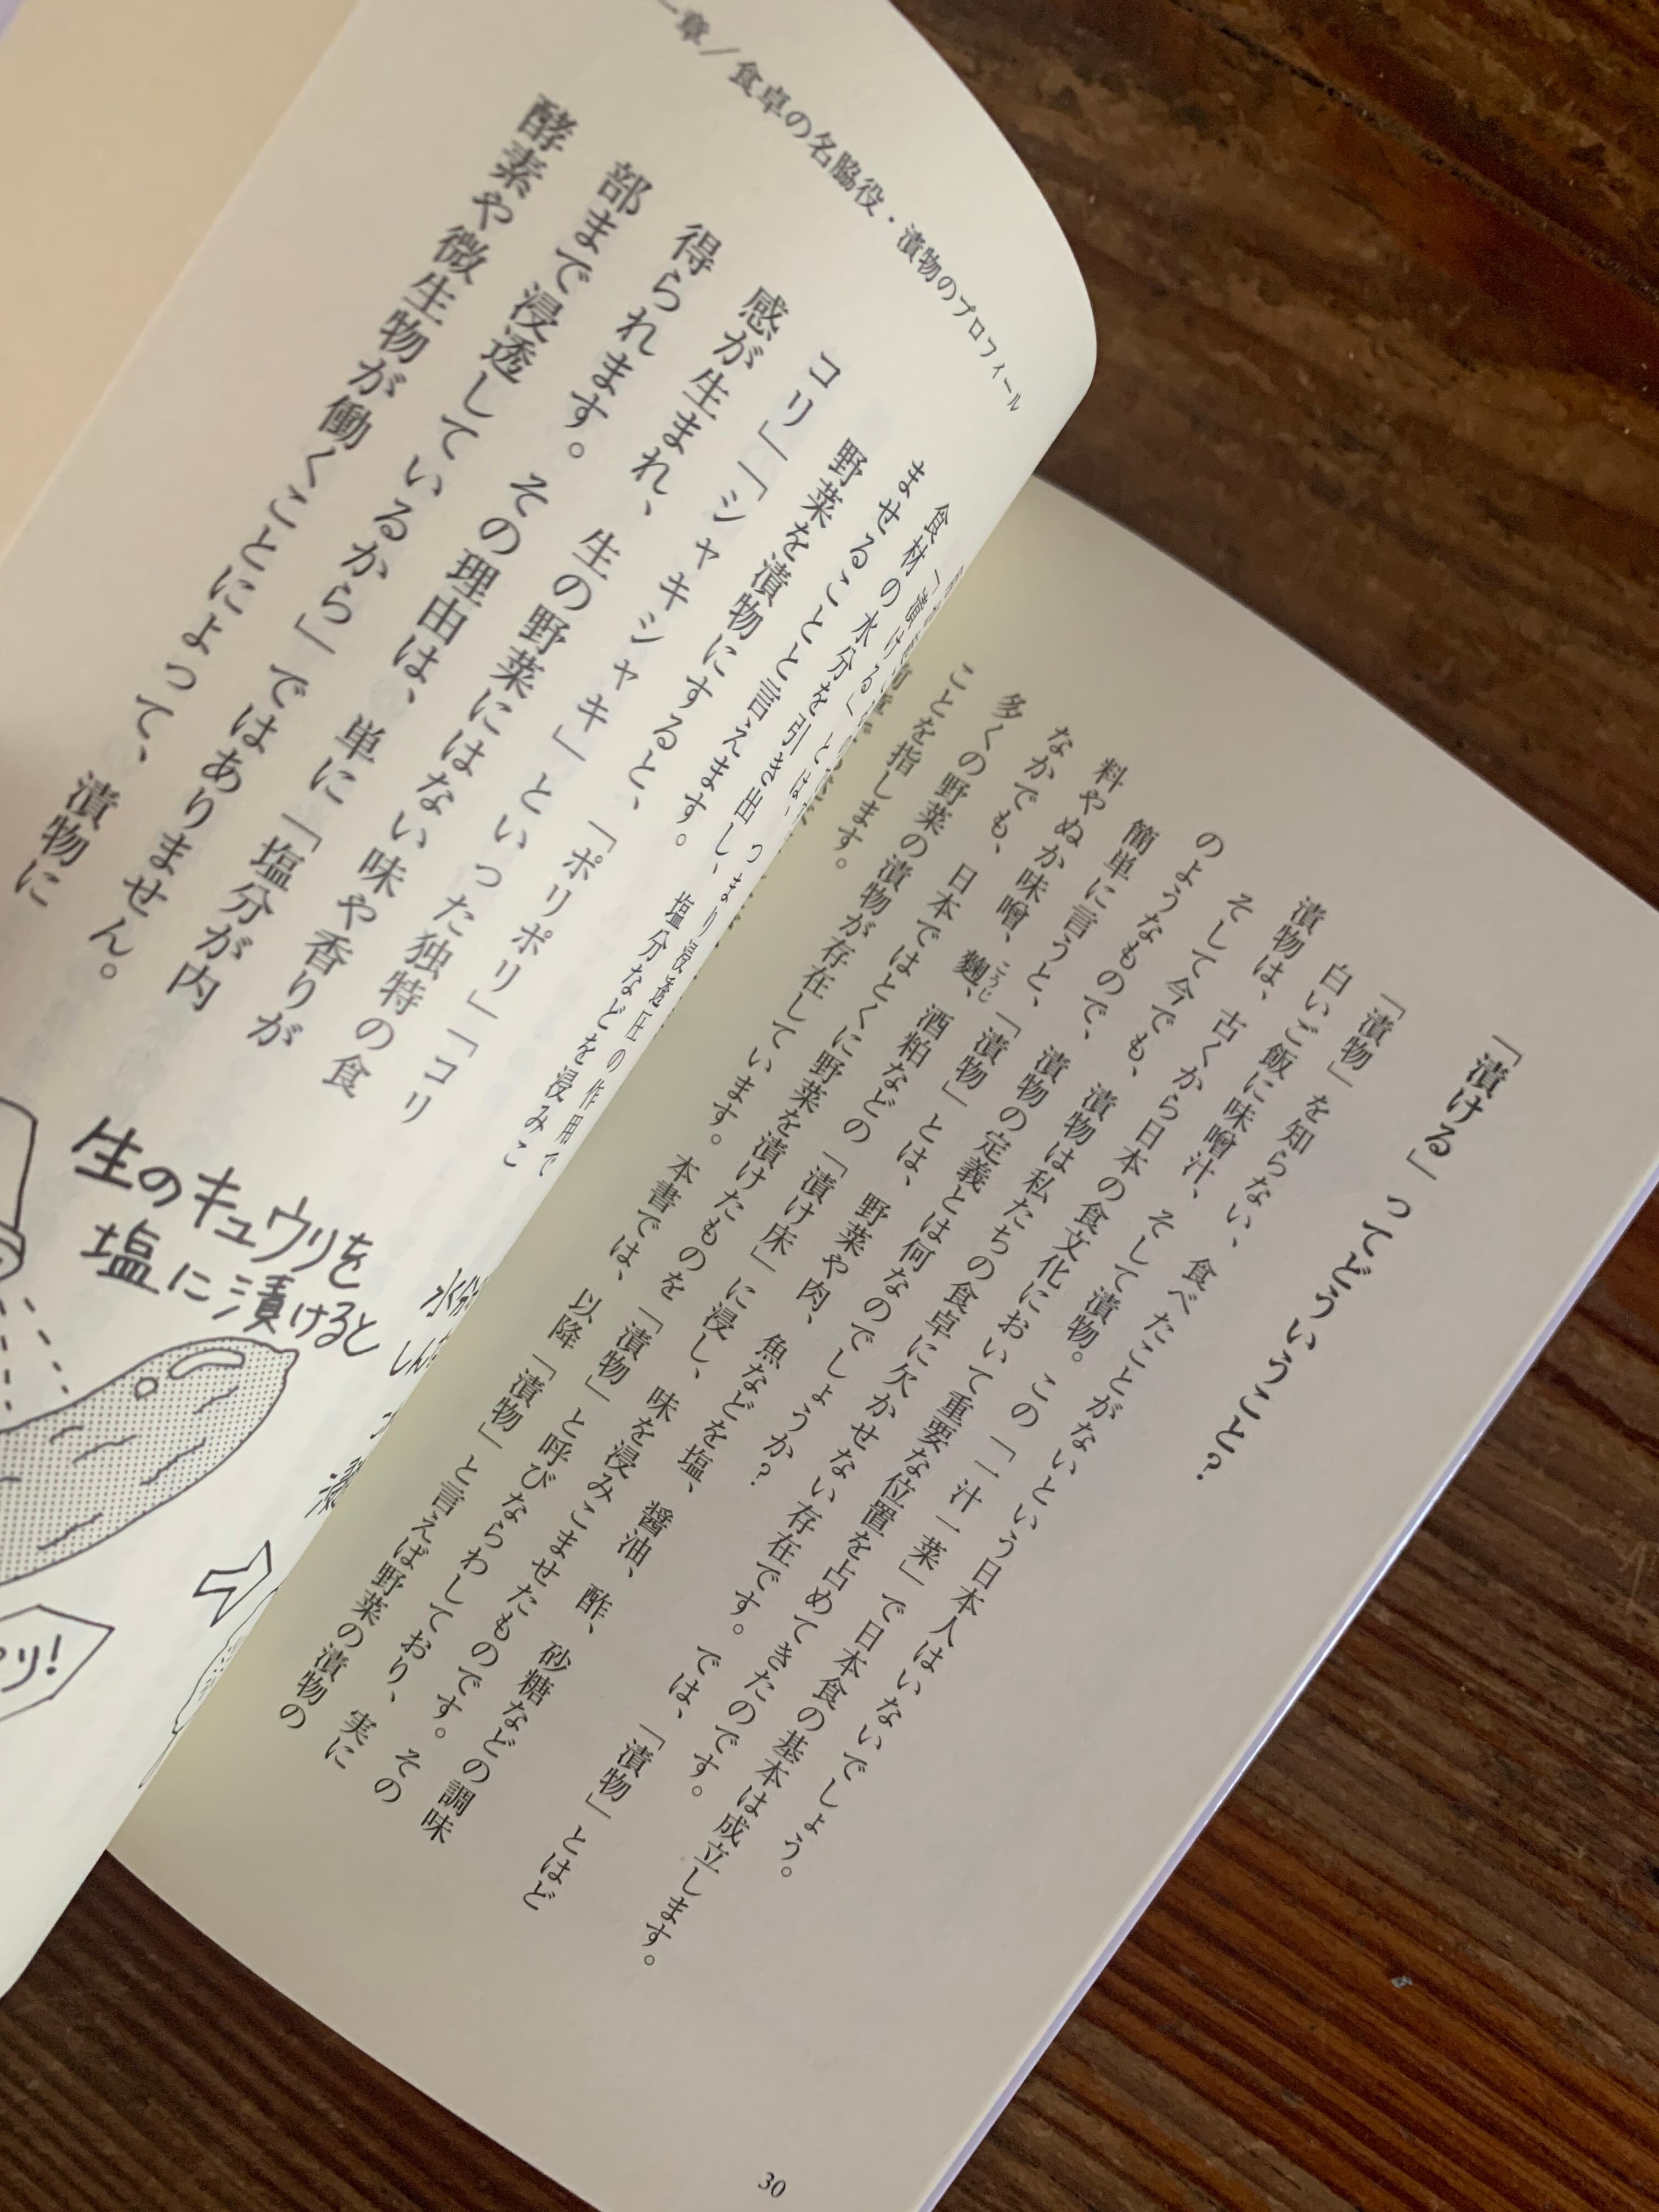 「漬ける」ってどういうこと？
「漬物」を知らない、食べたことがないという日本人はいないでしょう。
白いご飯に味噌汁、そして漬物。この「一汁一菜」で日本食の基本は成立します。
漬物は、古くから日本の食文化において重要な位置を占めてきたのです。
そして今でも、漬物は私たちの食卓に欠かせない存在です。では、「漬物」とはど
のようなもので、漬物の定義とは何なのでしょうか？
簡単に言うと、「漬物」とは、野菜や肉、魚などを塩、醤油、酢、砂糖などの調味
料やぬか味噌、麹、酒粕などの「漬け床」に浸し、味を浸みこませたものです。その
こうじ
なかでも、日本ではとくに野菜を漬けたものを「漬物」と呼びならわしており、実に
多くの野菜の漬物が存在しています。本書では、以降「漬物」と言えば野菜の漬物の
ことを指します。
30
一章／食卓の名脇役・漬物のプロフィール
「漬ける」とは、つまり浸透圧の作用で
食材の水分を引き出し、塩分などを浸みこ
ませることと言えます。
野菜を漬物にすると、「ポリポリ」「コリ
コリ」「シャキシャキ」といった独特の食
感が生まれ、生の野菜にはない味や香りが
得られます。その理由は、単に「塩分が内
部まで浸透しているから」ではありません。
酵素や微生物が働くことによって、漬物に
生のキュウリを
塩に漬けると
水分